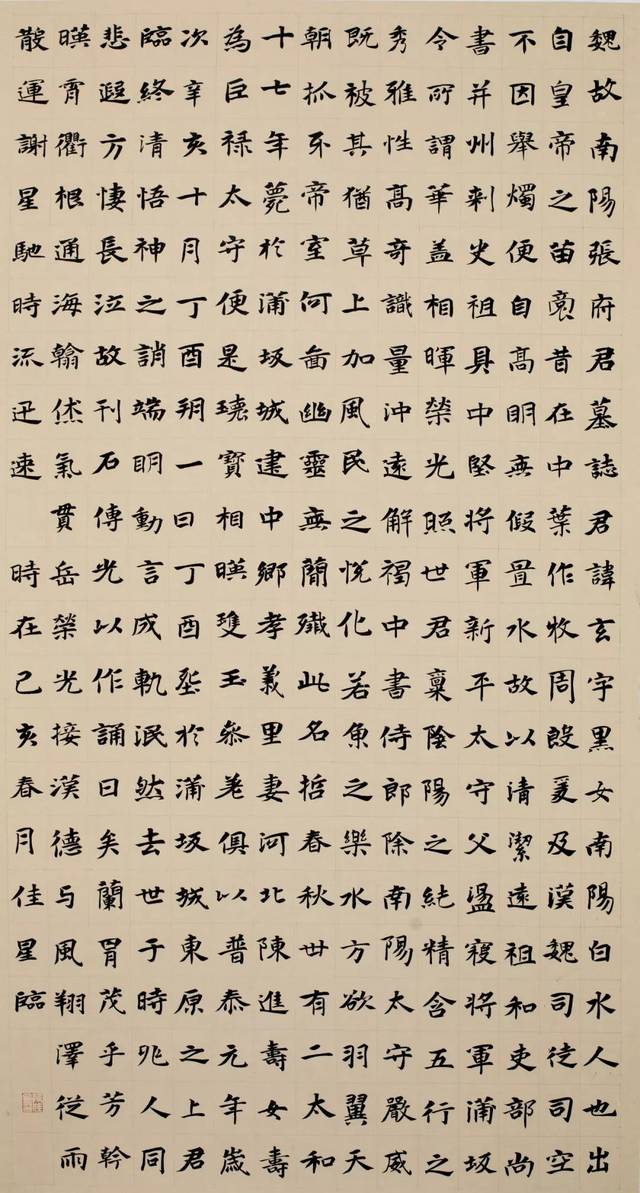 魏故南陽張府君墓誌君諱玄字黑女南陽白水人也出
自皇帝之苗裔昔在中葉作牧周殷爰及漢魏司徒司空
不因舉燭便自高明無假置水故以清潔遠祖和吏部尚
書并州刺史祖具中堅將軍新平太守父盪寇將軍蒲坂
令所謂華盖相暉榮光照世君稟陰陽之純精含五行之
秀雅性高奇識量沖遠解褐中書侍郎除南陽太守嚴威
既被其猶草上加風民之悅化若魚之樂水方欲羽翼天
朝抓牙帝室何啚幽靈無簡殲此名哲春秋卅有二太和
十七年薨於蒲坂城建中鄉孝義里妻河北陳進壽女壽
為巨祿太守便是瓌寶相暎雙玉參差俱以普泰元年歲
次辛亥十月丁酉朔一日丁酉塟於蒲坂城東原之上君
臨終清悟神之誚端明動言成軌泯然去世于時兆人同
悲遐方悽長泣故刊石傳光以作誦曰矣蘭胃茂乎芳幹
暎霄衢根通海翰烋氣貫岳榮光接漢德与風翔澤從雨
散運謝星馳時流迅速
時在己亥春月佳星臨